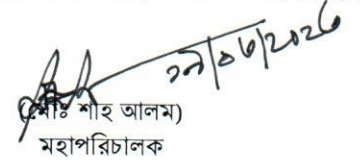 ২৯/০৮/২০২৩
(মোঃ শাহ আলম)
মহাপরিচালক